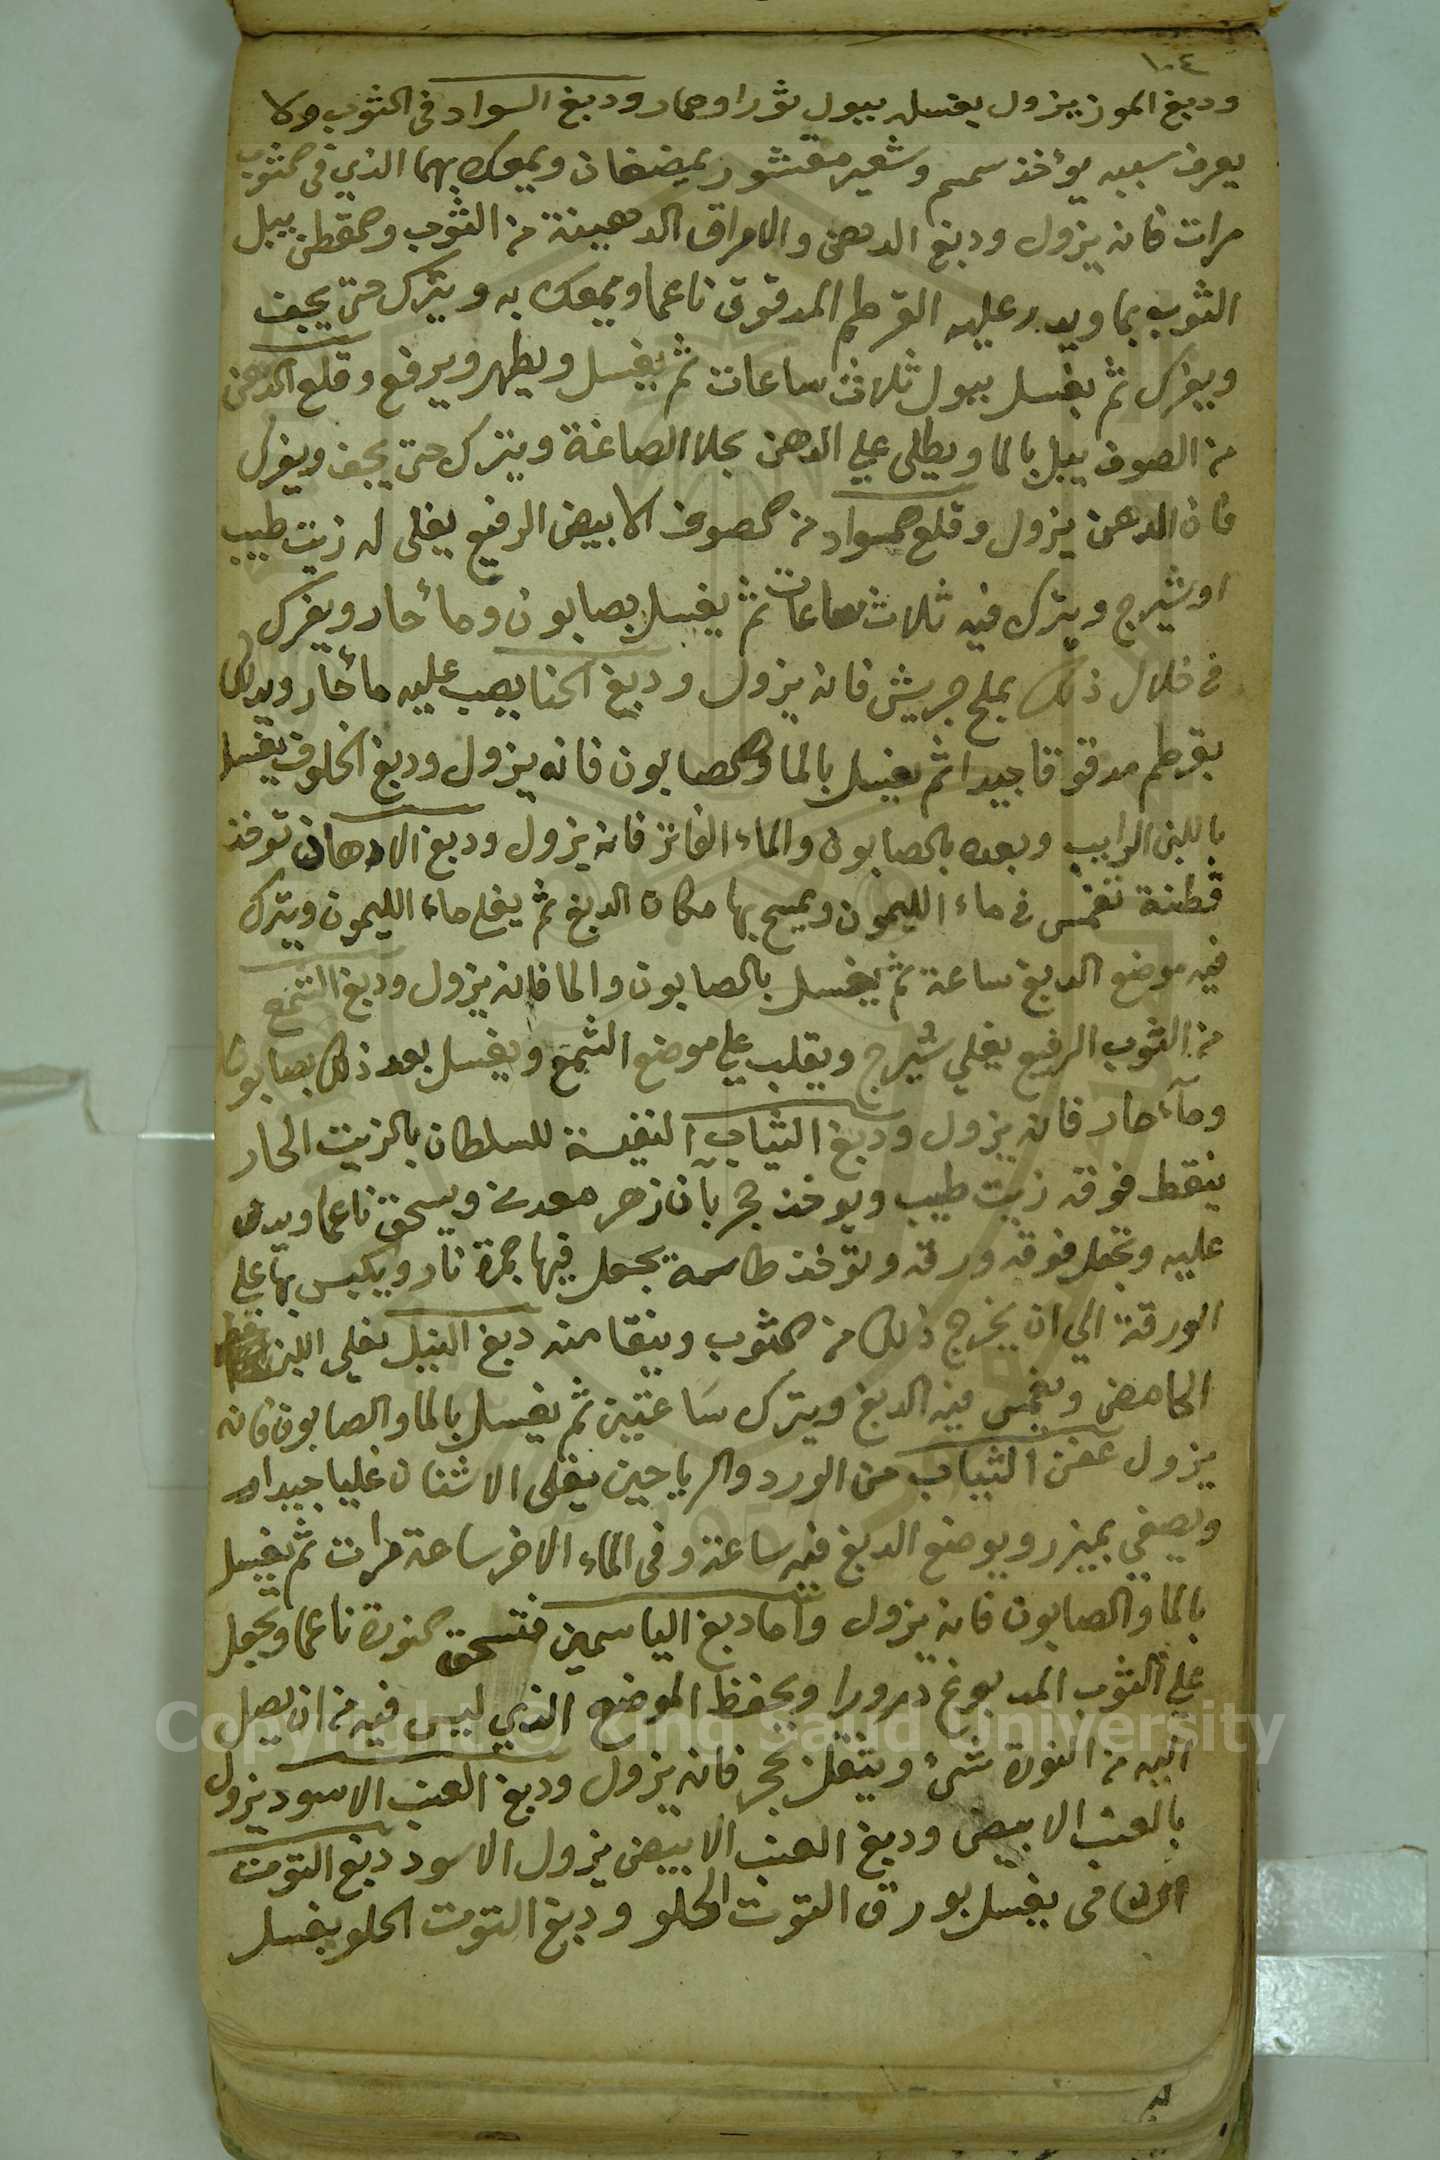 ١٠٤
ودبغ الموز يزول بغسله ببول ثور او حمار ودبغ السواد فى الثوب ولا
يعرف سببه يؤخذ سمسم وشعير مقشور يمضغان ويمعك بهما الذي فى الثوب
مرات فانه يزول ودبغ الدهن والامراق الدهينة من الثوب والقطن يبل
الثوب بما ويدر عليه القرطم المدقوق ناعما ويمعك به ويترك حتى يجف
ويفرك ثم يغسل ببول ثلاث ساعات ثم يغسل ويطهر ويرفع وقلع الدهن
من الصوف يبل بالما ويطلى علي الدهن بجلا الصاغة ويترك حتى يجف ويفرك
فان الدهن يزول وقلع السواد من الصوف الابيض الرفيع يغلى له زيت طيب
او شيرج ويترك فيه ثلاث ساعات ثم يغسل بصابون وماء حار ويفرك
فى خلال ذلك بملح جريش فانه يزول ودبغ الحنا يصب عليه ماء حار ويدلك
بقرطم مدقوقا جيدا ثم يغسل بالما والصابون فانه يزول ودبغ الخلوف يغسل
باللبن الرايب وبعده بالصابون والماء الفاتر فانه يزول ودبغ الادهان توخذ
قطنة تغمس فى ماء الليمون ويمسح بها مكان الدبغ ثم يغلى ماء الليمون ويترك
فيه موضع الدبغ ساعة ثم يغسل بالصابون والما فانه يزول ودبغ الشمع
من الثوب الرفيع يغلي شيرج ويقلب علي موضع الشمع ويغسل بعد ذلك بصابون
وماء حار فانه يزول ودبغ الثياب النفيسة للسلطان بالزيت الحار
ينقط فوقه زيت طيب ويوخذ حجر بآن زهر معدنى ويسحق ناعما ويدر
عليه وتجعل فوقه ورقة وتؤخذ طاسة يجعل فيها جمرة نار ويكبس بها علي
الورقة الي ان يخرج ذلك من الثوب وينقا منه دبغ النيل يغلى اللبن
الحامض ويغمس فيه الدبغ ويترك ساعتين ثم يغسل بالما والصابون فانه
يزول عفن الثياب من الورد والرياحين يغلى الاشنان غليا جيدا
ويصفي بميزر ويوضع الدبغ فيه ساعة وفى الماء الاخر ساعة مرات ثم يغسل
بالما والصابون فانه يزول واما دبغ الياسمين فتسحق النورة ناعما وتجعل
علي الثوب المدبوغ ذرورا ويحفظ الموضع الذي ليس فيه من ان يصل
اليه من النورة شئ ويثقل بحجر فانه يزول ودبغ العنب الاسود يزول
بالعنب الابيض ودبغ العنب الابيض يزول الاسود دبغ التوت
يغسل بورق التوت الحلو ودبغ التوت الحلو يغسل
Copyright © King Saud University